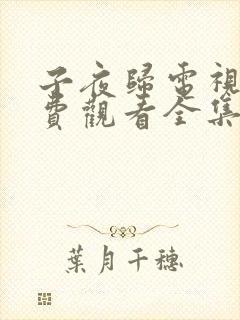 子夜歸電視
費觀看全集
葉月千穗